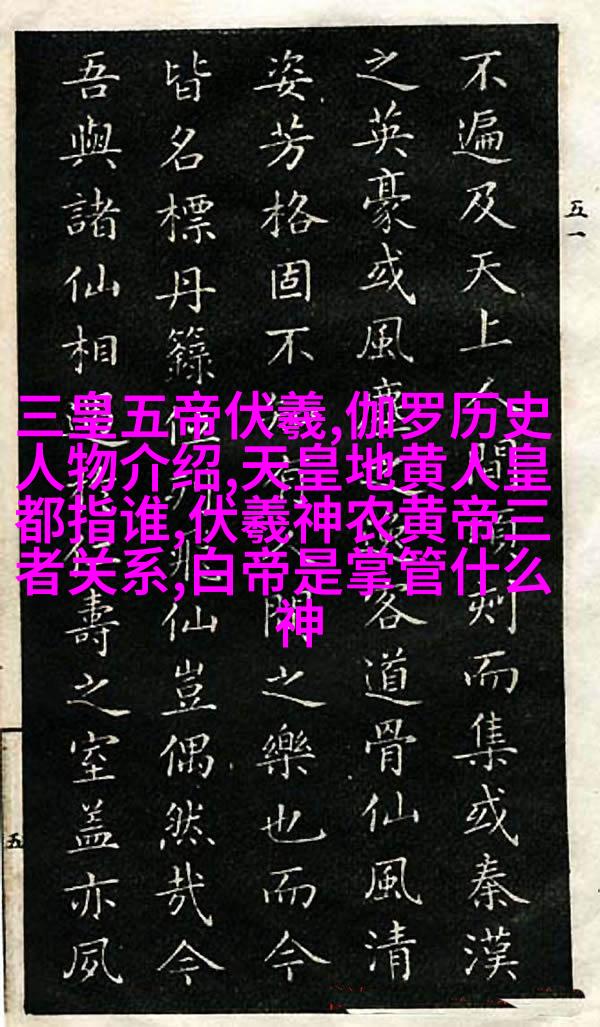 三皇五帝伏羲,伽罗历史
人物介绍,天皇地黄人皇
都指谁,伏羲神农黄帝三
者关系,白帝是掌管什么
神
五一
不遍及天上人間刻而集或秦漢
之英豪或風塵之客道骨仙風清
姿芳格固不之樂也而今
皆名標丹籙飛仙豈偶然哉今
吾與諸仙相壽之室蓋亦夙
五